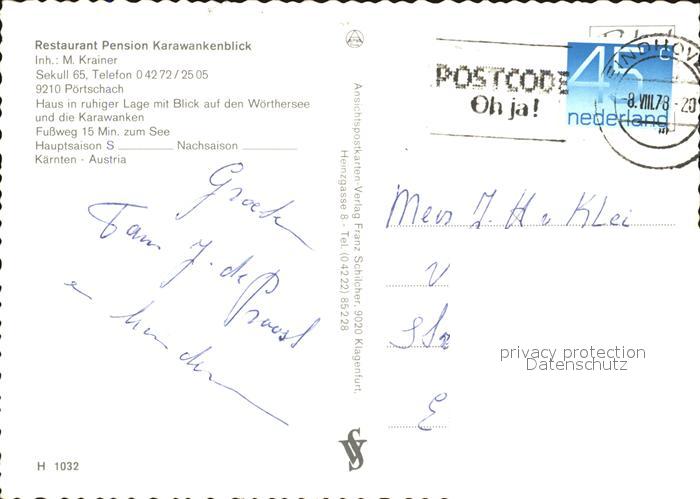 Restaurant Pension Karawankenblick
Inh.: M. Krainer
Sekull 65, Telefon 0 42 72 / 25 05
9210 Pörtschach
Haus in ruhiger Lage mit Blick auf den Wörthersee
und die Karawanken
Fußweg 15 Min. zum See
Hauptsaison S ________ Nachsaison ________
Kärnten - Austria
Fam J. de
H 1032
Ansichtspostkarten-Verlag Franz Schilcher, 9020 Klagenfurt,
Heinzgasse 8 - Tel. (0 42 22) 85 2 28
POSTCODE
Oh ja!
45 c
nederland
-8.VIII.78-20
J. H v Klei
V
E
privacy protection
Datenschutz